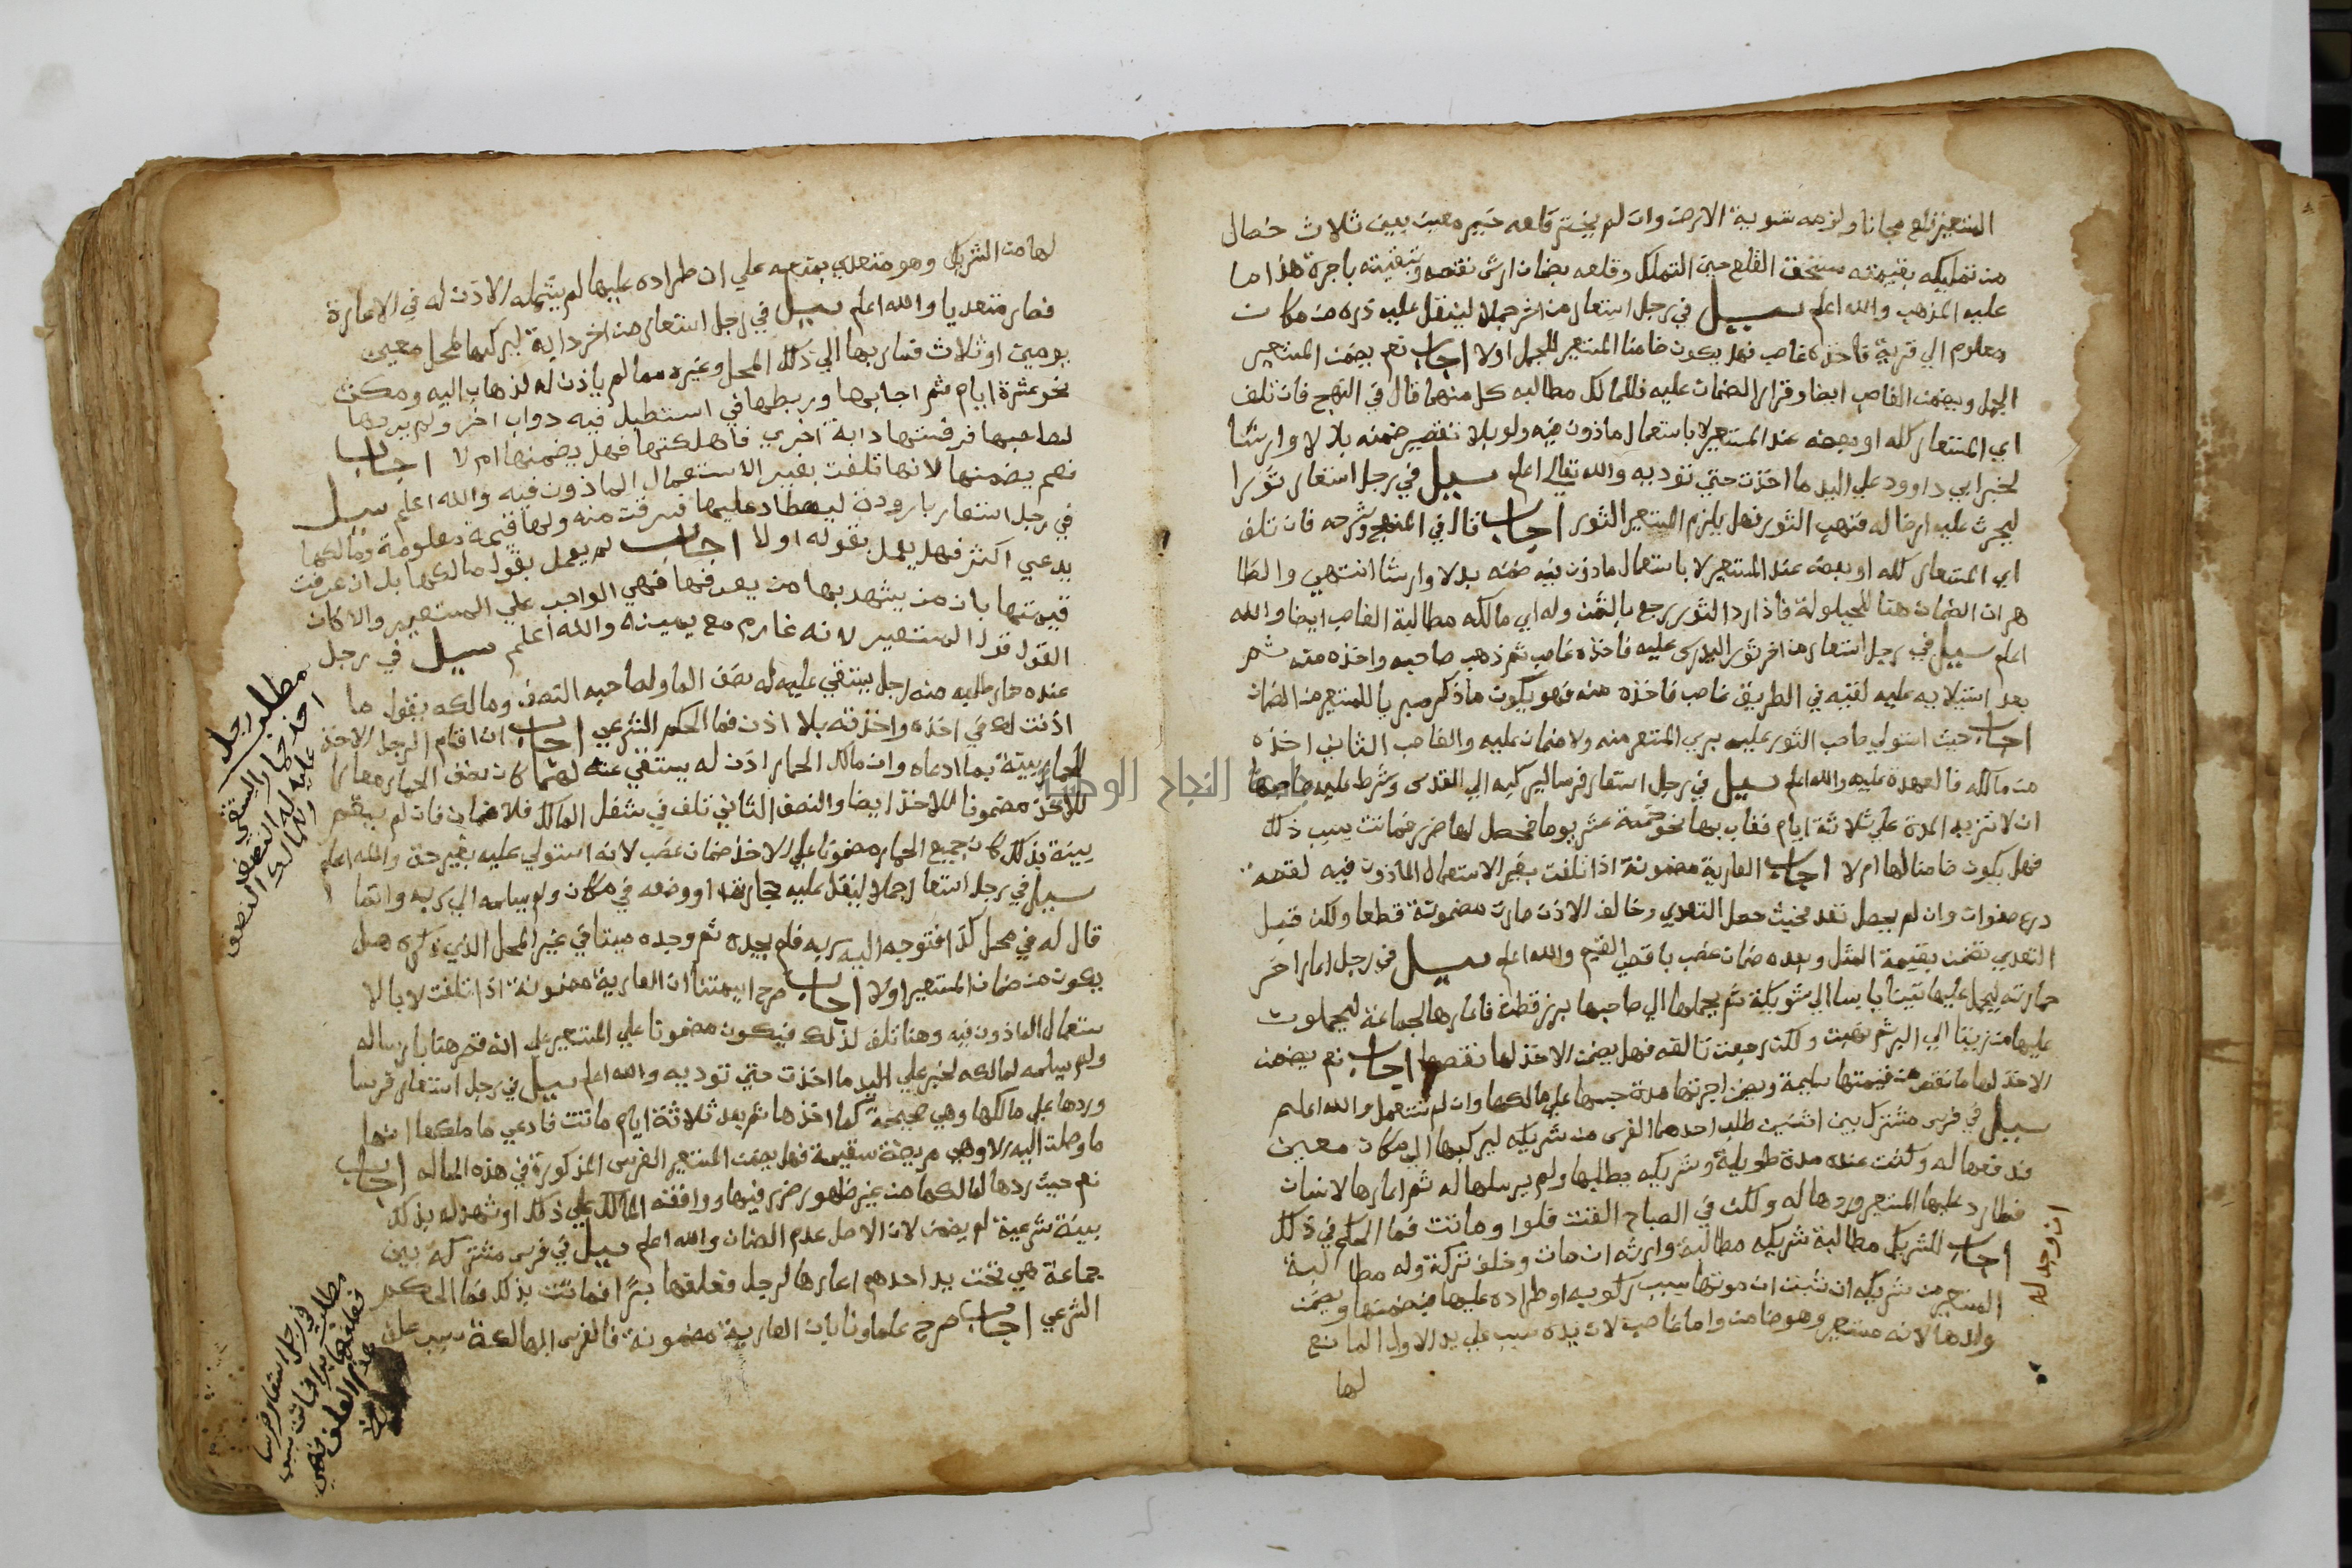 المستعير قلع مجانا ولزمه تسوية الارض وان لم يختر قلعه خير معير بين ثلاث خصال
من تملكه بقيمته مستحق القلع حين التملك وقلعه بضمان ارش نقصه وتبقيته باجرة هذا ما
عليه المذهب والله اعلم سيل في رجل استعار من اخر جملا لينقل عليه ذره من مكان
معلوم الي قرية فاخذه غاصب فهل يكون ضامنا المستعير للجمل اولا اجاب نعم يضمن المستعير
الجمل ويضمن الغاصب ايضا وقرار الضمان عليه فللمالك مطالبه كل منهما قال في النهج فان تلف
اي المستعار كله او بعضه عند المستعير لا باستعمال ماذون فيه ولو بلا تقصير ضمنه بدلا وارشا
لخبر ابي داوود علي اليد ما اخذت حتي توديه والله تعالي اعلم سيل في رجل استعار ثورا
ليحرث عليه ارضا له فنهب الثور فهل يلزم المستعير الثور اجاب قال في المنهج وشرحه فان تلف
اي المستعار كله او بعضه عند المستعير لا باستعمال ماذون فيه ضمنه بدلا وارشا انتهي والظا
هر ان الضمان هنا للحيلولة فاذا رد الثور رجع بالثمن وله اي مالكه مطالبة الغاصب ايضا والله
اعلم سيل في رجل استعار من اخر ثور اليدرس عليه فاخذه غاصب ثم ذهب صاحبه واخذه منه ثم
بعد استيلايه عليه لقيه في الطريق غاصب فاخذه منه فهو يكون ماذكر مبريا للمستعير من الضمان
اجاب حيث استولي صاحب الثور عليه بري المستعير منه ولا ضمان عليه والغاصب الثاني اخذه
من مالكه فالعهدة عليه والله اعلم سيل في رجل استعار فرسا ليركبه الي القدس وشرط عليه صاحبها
ان لا تزيد المدة علي ثلاثة ايام فغاب بها نحو خمسة عشر يوما فحصل لها ضرر فماتت بسبب ذلك
فهل يكون ضامنا لها ام لا اجاب العارية مضمونة اذا تلفت بغير الاستعمال الماذون فيه لقصة
درع صفوان وان لم يحصل تعد فحيث حصل التعدي وخالف الاذن صارت مضمونة قطعا ولكن قبل
التعدي تضمن بقيمة المثل وبعده ضمان غصب باقصي القيم والله اعلم سيل في رجل اعار اخر
حمارته ليحمل عليها تبنا يابسا الي شويكة ثم يحملوها الي صاحبها بزر قطنة فاعارها لجماعة ليحملون
عليها من زيتا الي البر ثم نهبت ولكن رجعت تالفه فهل يضمن الاخذ لها نقصها اجاب نعم يضمن
الاخذ لها ما نقص من قيمتها سليمة ويضمن اجرتها مدة حبسها علي مالكها وان لم تستعمل والله اعلم
سيل في فرس مشترك بين اثنين طلب احدهما الفرس من شريكه ليركبها الي مكان معين
فدفعها له وكثت عنده مدة طويلة وشريكه يطلبها ولم يرسلها له ثم اعارها لانسان
فطارد عليها المستعير وردها له ولكن في الصباح القت فلوا وماتت فما الحكم في ذلك
اجاب للشريك مطالبة شريكه مطالبة وارثه ان مات وخلف تركة وله مطالبة
المستعير من شريكه ان ثبت ان موتها بسبب ركوبه او طراده عليها فيضمنها ويضمن
ولدها لانه مستعير وهو ضامن واما غاصب لان يده سبب علي يد الاول المانع
لها
ان وجد له
لها من الشريك وهو متعدي بمنعه علي ان طراده عليها لم يشمله الاذن له في الاعارة
فصار متعديا والله اعلم سيل في رجل استعار من اخر دابة ليركبها لمحل معين
يومين او ثلاث فسار بها الي ذلك المحل وغيره مما لم ياذن له لذهاب اليه ومكث
نحو عشرة ايام ثم اجابها وربطها في اسنطبل فيه دواب اخر ولم يردها
لصاحبها فرفستها دابة اخري فاهلكتها فهل يضمنها ام لا اجاب
نعم يضمنها لانها تلفت بغير الاستعمال الماذون فيه والله اعلم سيل
في رجل استعار بارودة ليصطاد عليها فسرقت منه ولها قيمة معلومة ومالكها
يدعي اكثر فهل يعمل بقوله او لا اجاب لم يعمل بقول مالكها بل ان عرفت
قيمتها بان من يشهد بها من يعرفها فهي الواجب علي المستعير والا كان
القول قول المستعير لانه غارم مع يمينه والله اعلم سيل في رجل
عنده حمار طلبه منه رجل يستقي عليه له نصف الما ولصاحبه النصف ومالكه يقول ما
اذنت لك في اخذه واخذته بلا اذن فما الحكم الشرعي اجاب ان اقام الرجل الاخذ
للحمار بينة بما ادعاه وان مالك الحمار اذن له يستقي عنه لهما كان نصف الحمار معارا
للاخذ مضمونا للاخذ ايضا والنصف الثاني تلف في شغل المالك فلا ضمان فان لم يقم
بينة بذلك كان جميع الحمار مضمونا علي الاخذ ضمان غصب لانه استولي عليه بغير حق والله اعلم
سيل في رجل استعار جملا لينقل عليه حجارة او وضعه في مكان ولم يسلمه الي ربه وانما
قال له في محل كذا فتوجه اليه ربه فلم يجده ثم وجده ميتا في غير المحل الذي ذكره هل
يكون من ضمان المستعير اولا اجاب صرح ايمتنا ان العارية مضمونة اذا تلفت لا بالا
ستعمال الماذون فيه وهنا تلف لذلك فيكون مضمونا علي المستعير علي انه قصر هنا بارساله
ولم يسلمه لمالكه لخبر علي اليد ما اخذت حتي توديه والله اعلم سيل في رجل استعار فرسا
وردها علي مالكها وهي صحيحة كما اخذها ثم بعد ثلاثة ايام ماتت فادعي مالكها انها
ما وصلت اليه الا وهي مريضة سقيمة فهل يضمن المستعير الفرس المذكورة في هذه الحاله اجاب
نعم حيث ردها لمالكها من غير ظهور ضرر فيها ووافقه المالك علي ذلك او شهد له بذلك
بينة شرعية لم يضمن لان الاصل عدم الضمان والله اعلم سيل في فرس مشتركة بين
جماعة هي تحت يد احدهم اعارها لرجل فعلقها بئرا فماتت بذلك فما الحكم
الشرعي اجاب صرح علماونا بان العارية مضمونة فالفرس الهالكة بسبب علف
مطلب رجل
اخذ حمار ليستقي
عليه له النصف
وللمالك النصف
مطلب
في رجل استعار فرسا